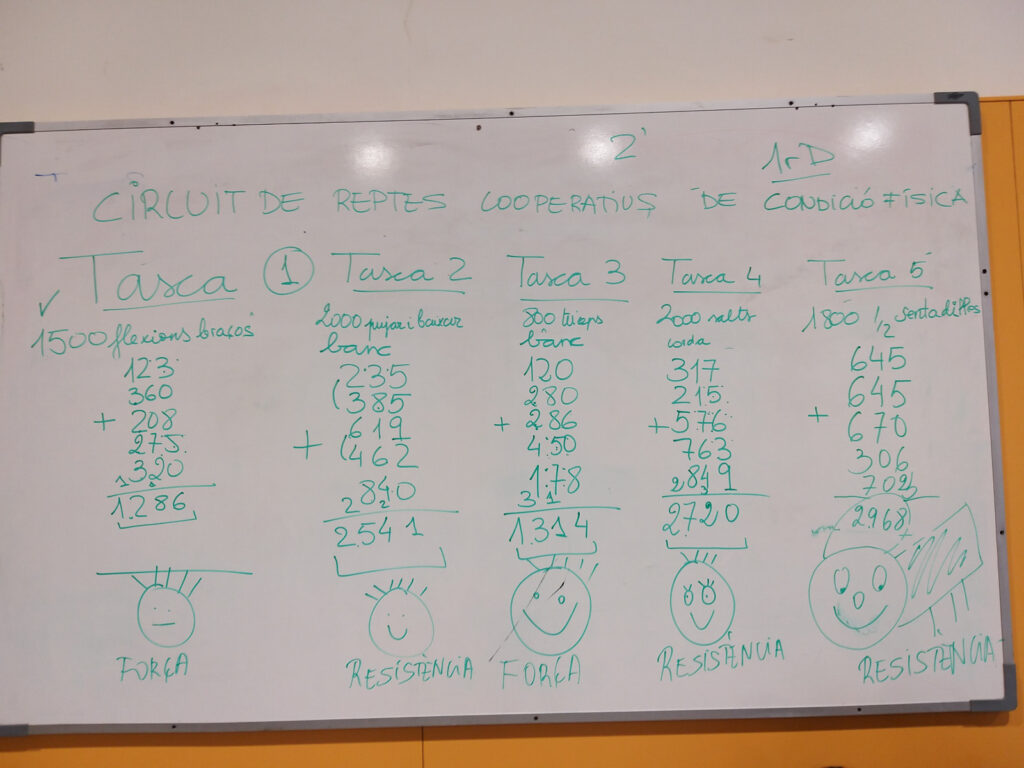 2'
1r D
CIRCUIT DE REPTES COOPERATIUS DE CONDICIÓ FÍSICA
Tasca 1
1500 flexions braços
123
360
+ 208
275
320
1.286
FORÇA
Tasca 2
2000 pujar i baixar
banc
235
385
+ 619
462
840
2.541
RESISTÈNCIA
Tasca 3
800
banc
120
280
+ 286
450
178
1.314
FORÇA
Tasca 4
2000 salts
corda
317
215
+ 576
763
849
2720
RESISTÈNCIA
Tasca 5
1800 1/2 sentadilles
645
645
+ 670
306
702
2968
RESISTÈNCIA